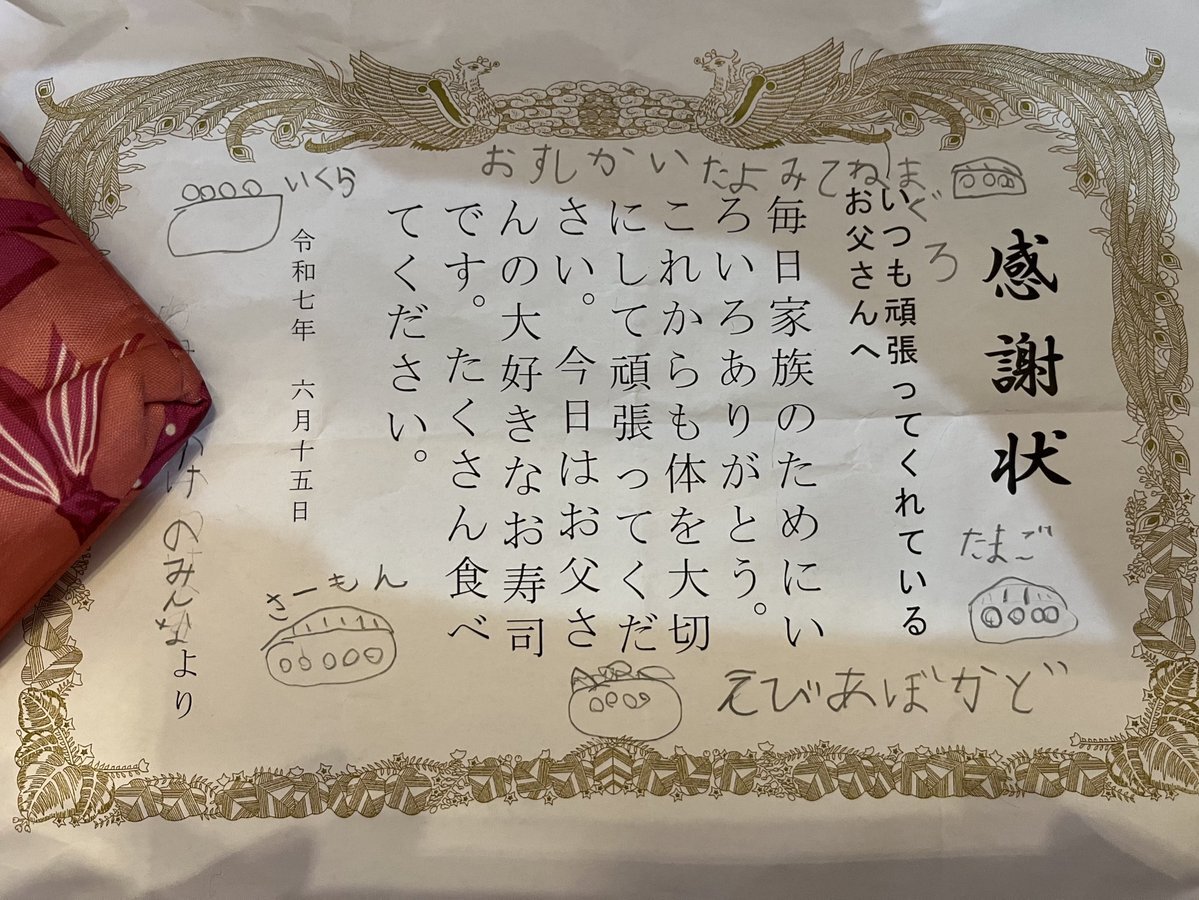 感謝状
いつも頑張ってくれている
お父さんへ
毎日家族のためにい
ろいろありがとう。
これからも体を大切
にして頑張ってくだ
さい。今日はお父さ
んの大好きなお寿司
です。たくさん食べ
てください。
令和七年 六月十五日
のみんなより
おすしかいたよみてね
まぐろ
たまご
えびあぼかど
さーもん
いくら